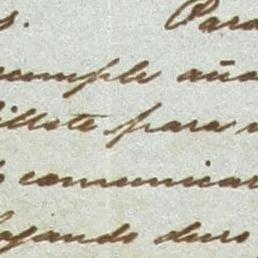 s. Para
cumple aña
illete para
comunicar
pagando duro